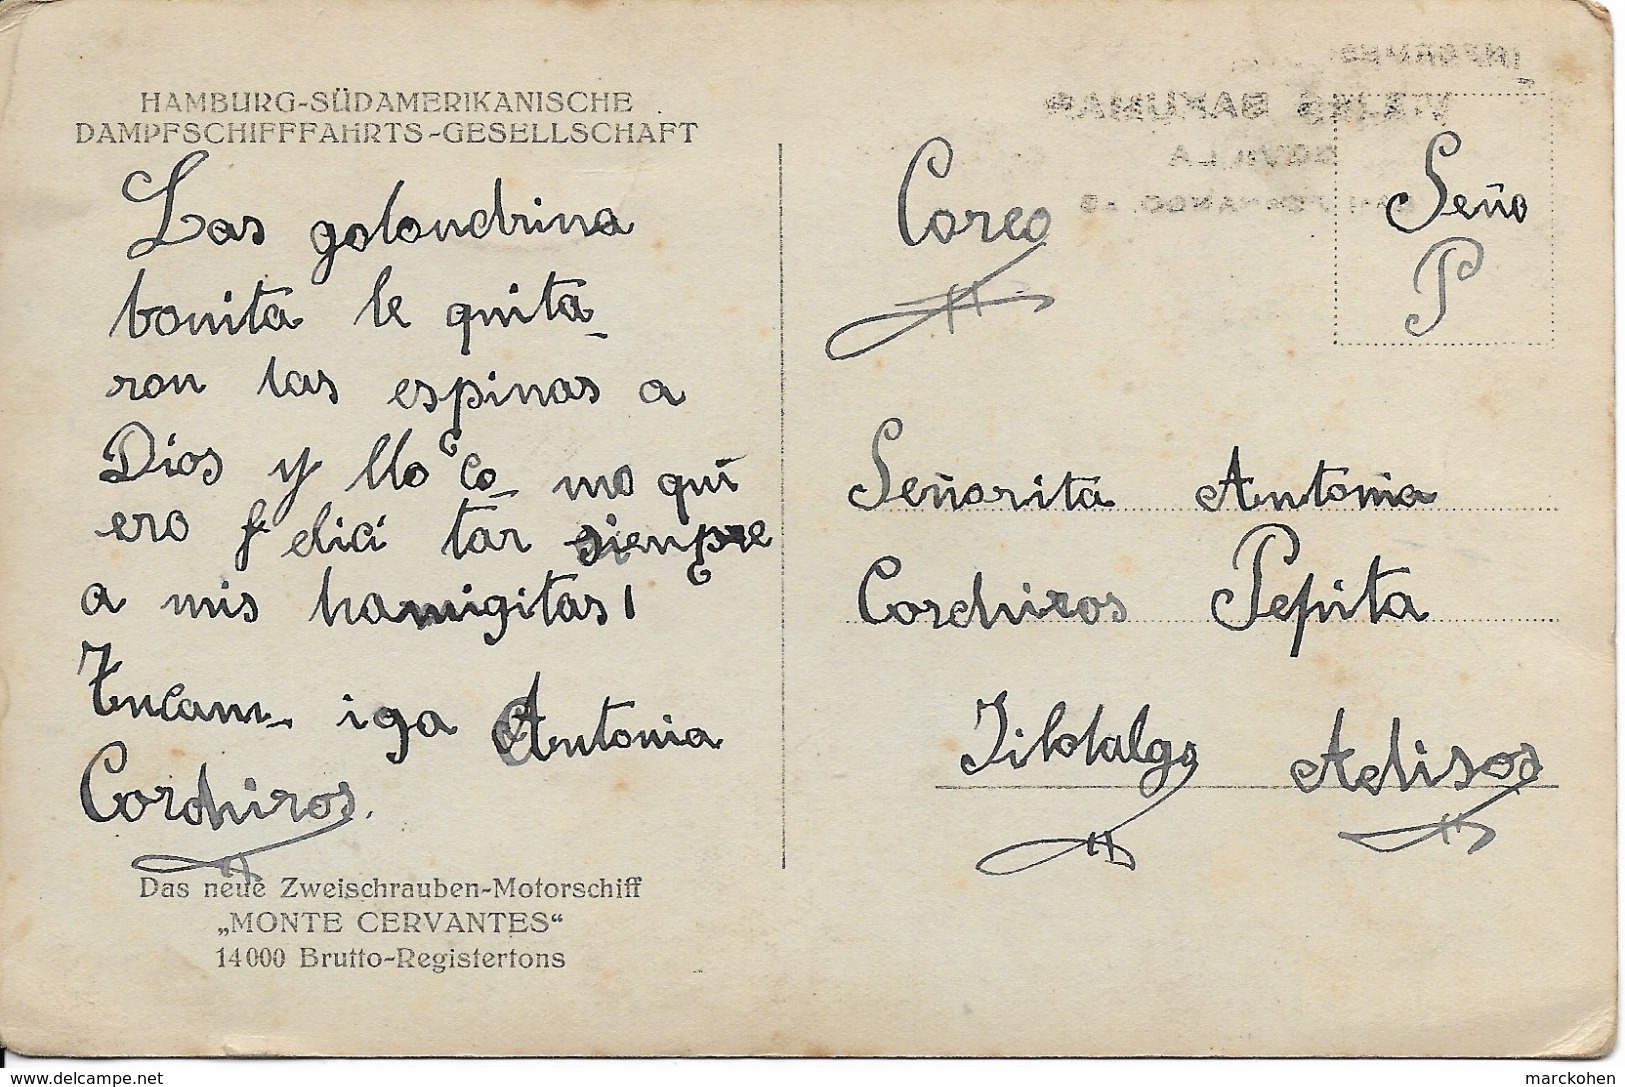 HAMBURG-SÜDAMERIKANISCHE
DAMPFSCHIFFFAHRTS-GESELLSCHAFT
Las golondrina
bonita le quita-
ron las espinas a
Dios y llo co- mo qui
ero felici tar sienpre
a mis hamigitas!
Antonia
Corchiros.
Das neue Zweischrauben-Motorschiff
„MONTE CERVANTES“
14000 Brutto-Registertons
SEVILLA
Correo
Seño
P
Señorita Antonia
Corchiros Pepita
www.delcampe.net
marckohen